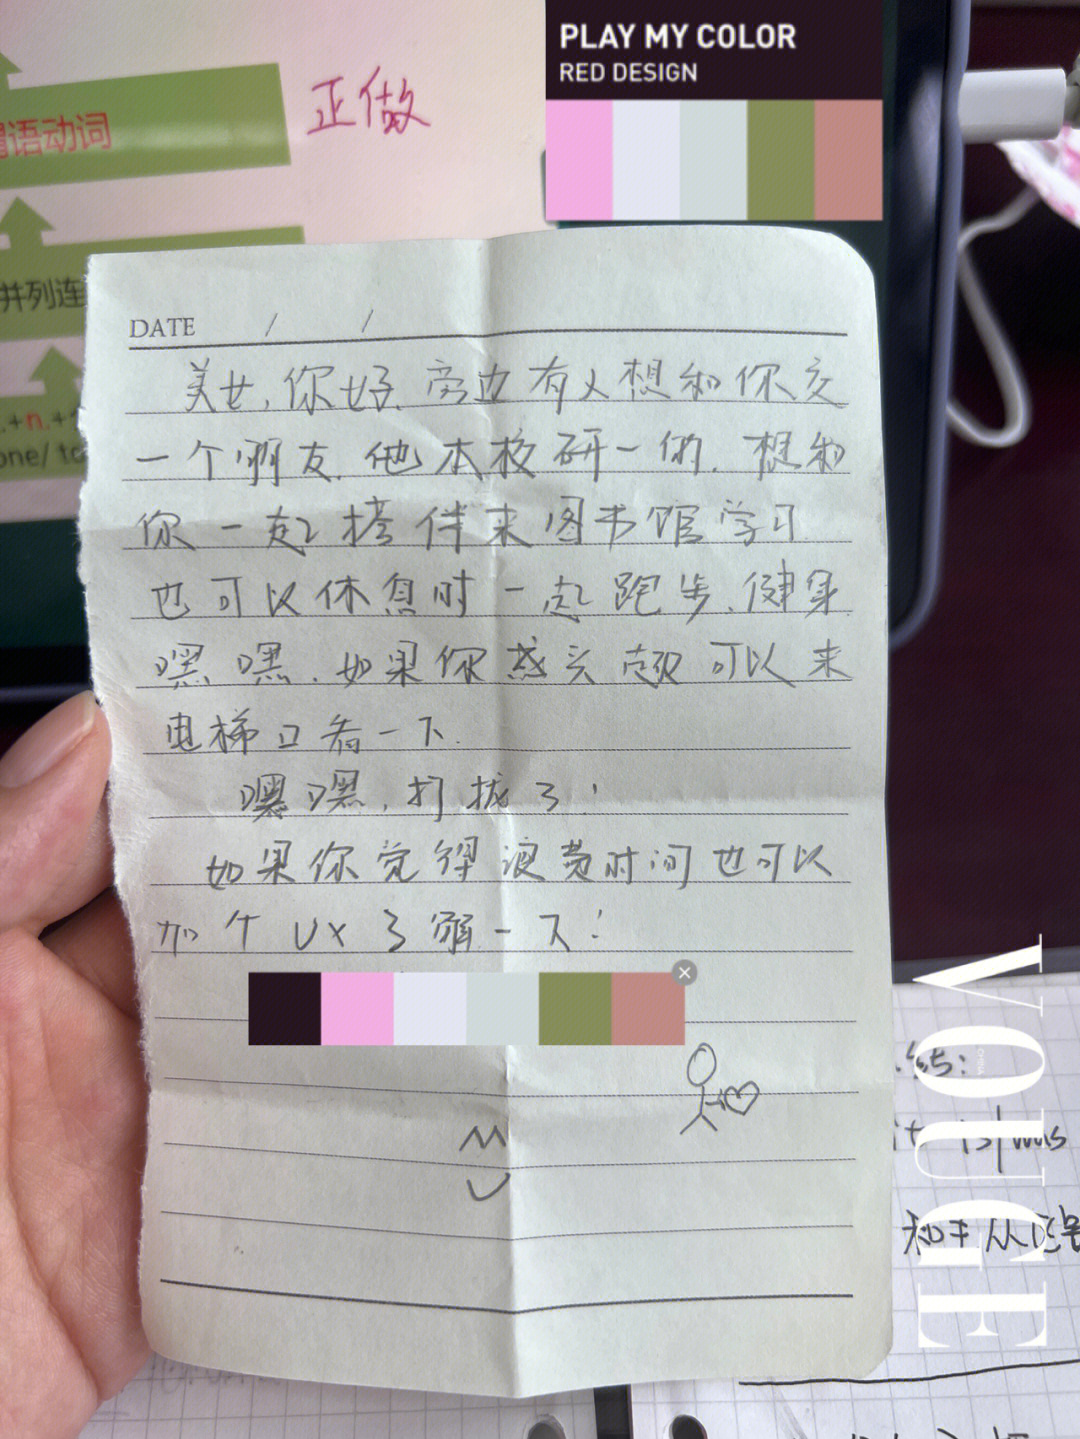 PLAY MY COLOR
RED DESIGN
谓语动词
正做
并列连
.+n.+
one/ to
DATE / /
美女,你好,旁边有人想和你交
一个朋友,他本校研一的,想和
你一起搭伴来图书馆学习
也可以休息时一起跑步、健身
嘿嘿,如果你感兴趣可以来
电梯口看一下.
嘿嘿,打扰了!
如果你觉得浪费时间也可以
加个VX了解一下!
VOUGE
结: